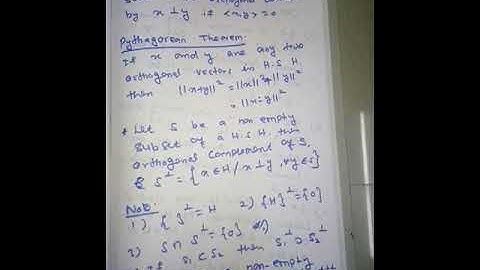 by x ⊥ y if <x,y> = 0
Pythagorean Theorem:
If x and y are any two
orthogonal vectors in H.S H.
then ||x+y||² = ||x||² + ||y||²
= ||x-y||²
* Let S be a non empty
Subset of a H.S H, then
orthogonal complement of S,
S^⊥ = {x ∈ H / x ⊥ y, ∀y ∈ S}
Note:
1) { }^⊥ = H 2) {H}^⊥ = {0}
3) S ∩ S^⊥ = {0}
If S₁ ⊂ S₂ then S₁^⊥ ⊃ S₂^⊥
non-empty